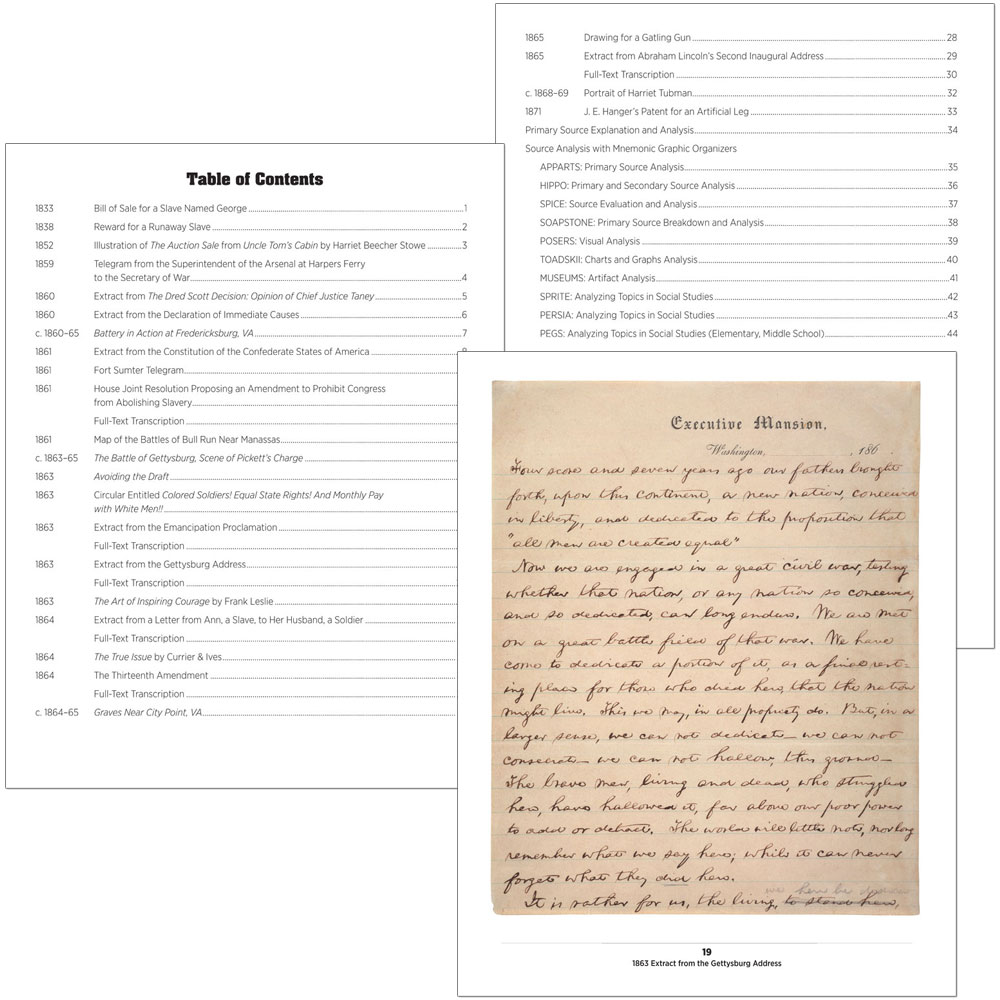 Table of Contents
1833 Bill of Sale for a Slave Named George 1
1838 Reward for a Runaway Slave 2
1852 Illustration of The Auction Sale from Uncle Tom's Cabin by Harriet Beecher Stowe 3
1859 Telegram from the Superintendent of the Arsenal at Harpers Ferry
to the Secretary of War 4
1860 Extract from The Dred Scott Decision: Opinion of Chief Justice Taney 5
1860 Extract from the Declaration of Immediate Causes 6
c. 1860–65 Battery in Action at Fredericksburg, VA 7
1861 Extract from the Constitution of the Confederate States of America
1861 Fort Sumter Telegram
1861 House Joint Resolution Proposing an Amendment to Prohibit Congress
from Abolishing Slavery
Full-Text Transcription
1861 Map of the Battles of Bull Run Near Manassas
c. 1863–65 The Battle of Gettysburg, Scene of Pickett's Charge
1863 Avoiding the Draft
1863 Circular Entitled Colored Soldiers! Equal State Rights! And Monthly Pay
with White Men!!
1863 Extract from the Emancipation Proclamation
Full-Text Transcription
1863 Extract from the Gettysburg Address
Full-Text Transcription
1863 The Art of Inspiring Courage by Frank Leslie
1864 Extract from a Letter from Ann, a Slave, to Her Husband, a Soldier
Full-Text Transcription
1864 The True Issue by Currier & Ives
1864 The Thirteenth Amendment
Full-Text Transcription
c. 1864–65 Graves Near City Point, VA
1865 Drawing for a Gatling Gun 28
1865 Extract from Abraham Lincoln's Second Inaugural Address 29
Full-Text Transcription 30
c. 1868–69 Portrait of Harriet Tubman 32
1871 J. E. Hanger's Patent for an Artificial Leg 33
Primary Source Explanation and Analysis 34
Source Analysis with Mnemonic Graphic Organizers
APPARTS: Primary Source Analysis 35
HIPPO: Primary and Secondary Source Analysis 36
SPICE: Source Evaluation and Analysis 37
SOAPSTONE: Primary Source Breakdown and Analysis 38
POSERS: Visual Analysis 39
TOADSKII: Charts and Graphs Analysis 40
MUSEUMS: Artifact Analysis 41
SPRITE: Analyzing Topics in Social Studies 42
PERSIA: Analyzing Topics in Social Studies 43
PEGS: Analyzing Topics in Social Studies (Elementary, Middle School) 44
Executive Mansion,
Washington, , 186
Four score and seven years ago our fathers brought
forth, upon this continent, a new nation, conceived
in liberty, and dedicated to the proposition that
"all men are created equal"
Now we are engaged in a great civil war, testing
whether that nation, or any nation so conceived,
and so dedicated, can long endure. We are met
on a great battle field of that war. We have
come to dedicate a portion of it, as a final rest-
ing place for those who died here, that the nation
might live. This we may, in all propriety do. But, in a
larger sense, we can not dedicate— we can not
consecrate— we can not hallow, this ground—
The brave men, living and dead, who struggled
here, have hallowed it, far above our poor power
to add or detract. The world will little note, nor long
remember what we say here; while it can never
forget what they did here.
we here be
It is rather for us, the living, to stand here,
19
1863 Extract from the Gettysburg Address